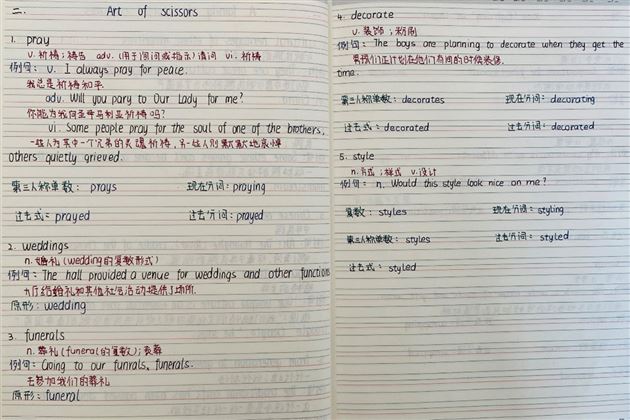 二. Art of scissors
1. pray
v. 祈祷；祷告 adv. (用于询问或指示)请问 vi. 祈祷
例句：v. I always pray for peace.
我总是祈祷和平
adv. Will you pary to Our Lady for me?
你能为我向圣母马利亚祈祷吗？
vi. Some people pray for the soul of one of the brothers,
一些人为其中一个兄弟的灵魂祈祷，另一些人则默默地哀悼
others quietly grieved.
第三人称单数：prays 现在分词：praying
过去式：prayed 过去分词：prayed
2. weddings
n. 婚礼(wedding的复数形式)
例句：The hall provided a venue for weddings and other functions
大厅给婚礼和其他社交活动提供了场所.
原形：wedding
3. funerals
n. 葬礼(funeral的复数)；丧葬
例句：Going to our funrals, funerals.
去参加我们的葬礼
原形：funeral
4. decorate
v. 装饰；粉刷
例句：The boys are planning to decorate when they get the
男孩们正计划在他们有时间的时候装修.
time.
第三人称单数：decorates 现在分词：decorating
过去式：decorated 过去分词：decorated
5. style
n. 方式；样式 v. 设计
例句：n. Would this style look nice on me?
复数：styles 现在分词：styling
第三人称单数：styles 过去分词：styled
过去式：styled